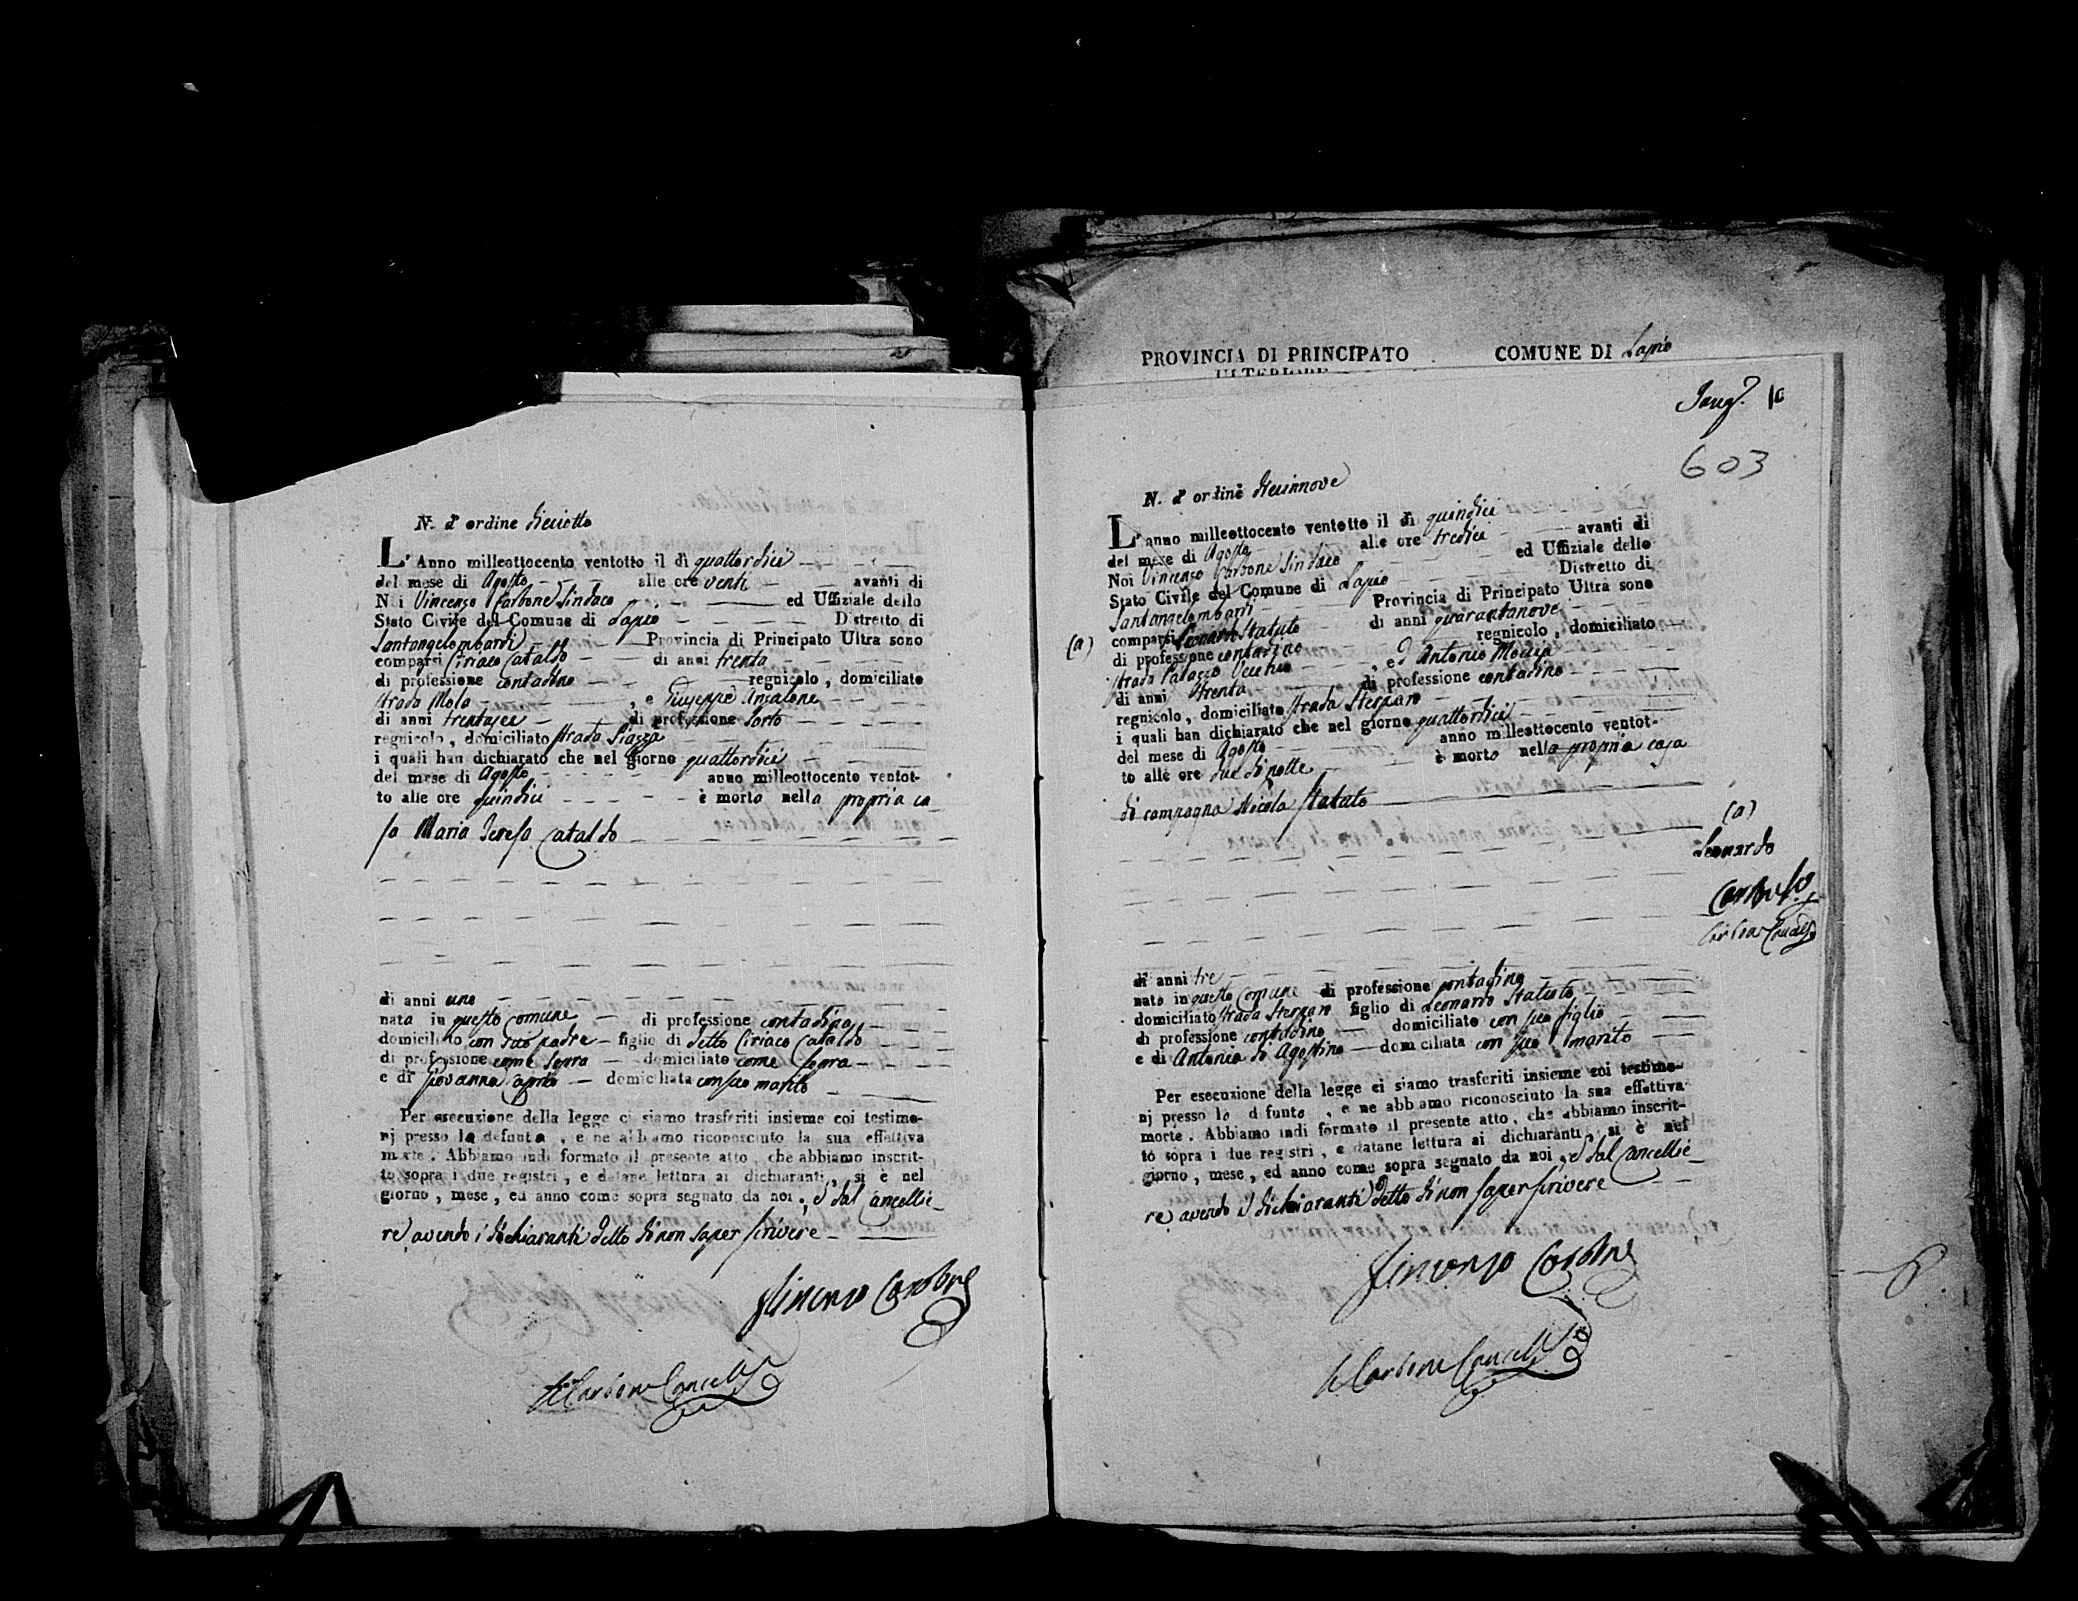 N. d'ordine dieciotto
L'Anno milleottocento ventotto il dì quattordici
del mese di Agosto alle ore venti avanti di
Noi Vincenzo Carbone Sindaco ed Uffiziale dello
Stato Civile del Comune di Lapio Distretto di
Santangelombardi Provincia di Principato Ultra sono
comparsi Ciriaco Cataldo di anni trenta
di professione contadino regnicolo, domiciliato
strada Mola, e Giuseppe Anzalone
di anni trentasei di professione Sarto
regnicolo, domiciliato strada Piazza
i quali han dichiarato che nel giorno quattordici
del mese di Agosto anno milleottocento ventot-
to alle ore quindici è morta nella propria ca-
sa Maria Teresa Cataldo
di anni uno
nata in questo comune di professione contadina
domiciliato con suo padre figlio di detto Ciriaco Cataldo
di professione come sopra domiciliato come sopra
e di Giovanna domiciliata con suo marito
Per esecuzione della legge ci siamo trasferiti insieme coi testimo-
nj presso la defunta, e ne abbiamo riconosciuto la sua effettiva
morte. Abbiamo indi formato il presente atto, che abbiamo inscrit-
to sopra i due registri, e datane lettura ai dichiaranti, si è nel
giorno, mese, ed anno come sopra segnato da noi, e dal Cancellie-
re avendo i dichiaranti detto di non saper scrivere
Vincenzo Carbone
Carbone Cancell.
PROVINCIA DI PRINCIPATO COMUNE DI Lapio
ULTERIORE
603
N. d'ordine diecinnove
L'anno milleottocento ventotto il dì quindici
del mese di Agosto alle ore tredici avanti di
Noi Vincenzo Carbone Sindaco ed Uffiziale dello
Stato Civile del Comune di Lapio Distretto di
Santangelombardi Provincia di Principato Ultra sono
(a) comparsi Leonardo Statuto di anni quarantanove
di professione contadino regnicolo, domiciliato
strada Palazzo Vecchio, ed Antonio Moccia
di anni trenta di professione contadino
regnicolo, domiciliato strada
i quali han dichiarato che nel giorno quattordici
del mese di Agosto anno milleottocento ventot-
to alle ore due di notte è morto nella propria casa
di campagna Nicola Statuto
(a)
Leonardo
di anni tre
nato in questo Comune di professione contadino
domiciliato strada figlio di Leonardo Statuto
di professione contadino domiciliato con suo figlio
e di Antonia di Agostino domiciliata con suo marito
Per esecuzione della legge ci siamo trasferiti insieme coi testimo-
nj presso lo defunto, e ne abbiamo riconosciuto la sua effettiva
morte. Abbiamo indi formato il presente atto, che abbiamo inscrit-
to sopra i due registri, e datane lettura ai dichiaranti, si è nel
giorno, mese, ed anno come sopra segnato da noi, e dal Cancellie-
re avendo i dichiaranti detto di non saper scrivere
Vincenzo Carbone
Carbone Cancell.